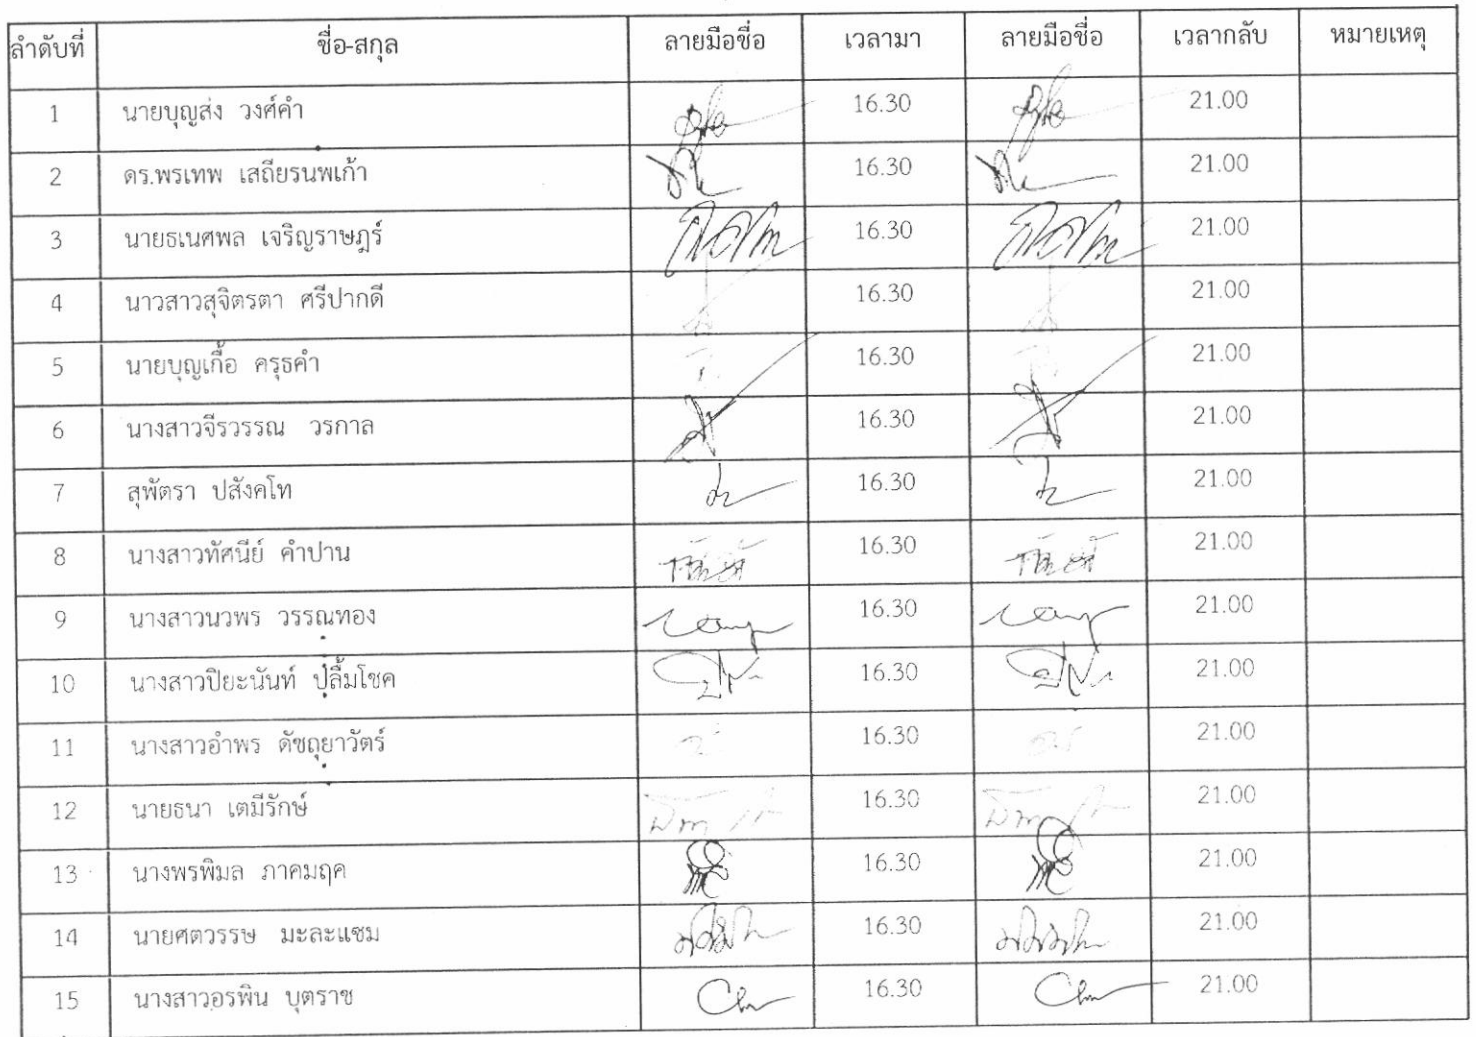 ลำดับที่ ชื่อ-สกุล ลายมือชื่อ เวลามา ลายมือชื่อ เวลากลับ หมายเหตุ
1 นายบุญส่ง วงศ์คำ 16.30 21.00
2 ดร.พรเทพ เสถียรนพเก้า 16.30 21.00
3 นายธเนศพล เจริญราษฎร์ 16.30 21.00
4 นาวสาวสุจิตรตา ศรีปากดี 16.30 21.00
5 นายบุญเกื้อ ครุธคำ 16.30 21.00
6 นางสาวจีรวรรณ วรกาล 16.30 21.00
7 สุพัตรา ปสังคโท 16.30 21.00
8 นางสาวทัศนีย์ คำปาน 16.30 21.00
9 นางสาวนวพร วรรณทอง 16.30 21.00
10 นางสาวปิยะนันท์ ปลื้มโชค 16.30 21.00
11 นางสาวอำพร ดัชถุยาวัตร์ 16.30 21.00
12 นายธนา เตมีรักษ์ 16.30 21.00
13 นางพรพิมล ภาคมฤค 16.30 21.00
14 นายศตวรรษ มะละแซม 16.30 21.00
15 นางสาวอรพิน บุตราช 16.30 21.00